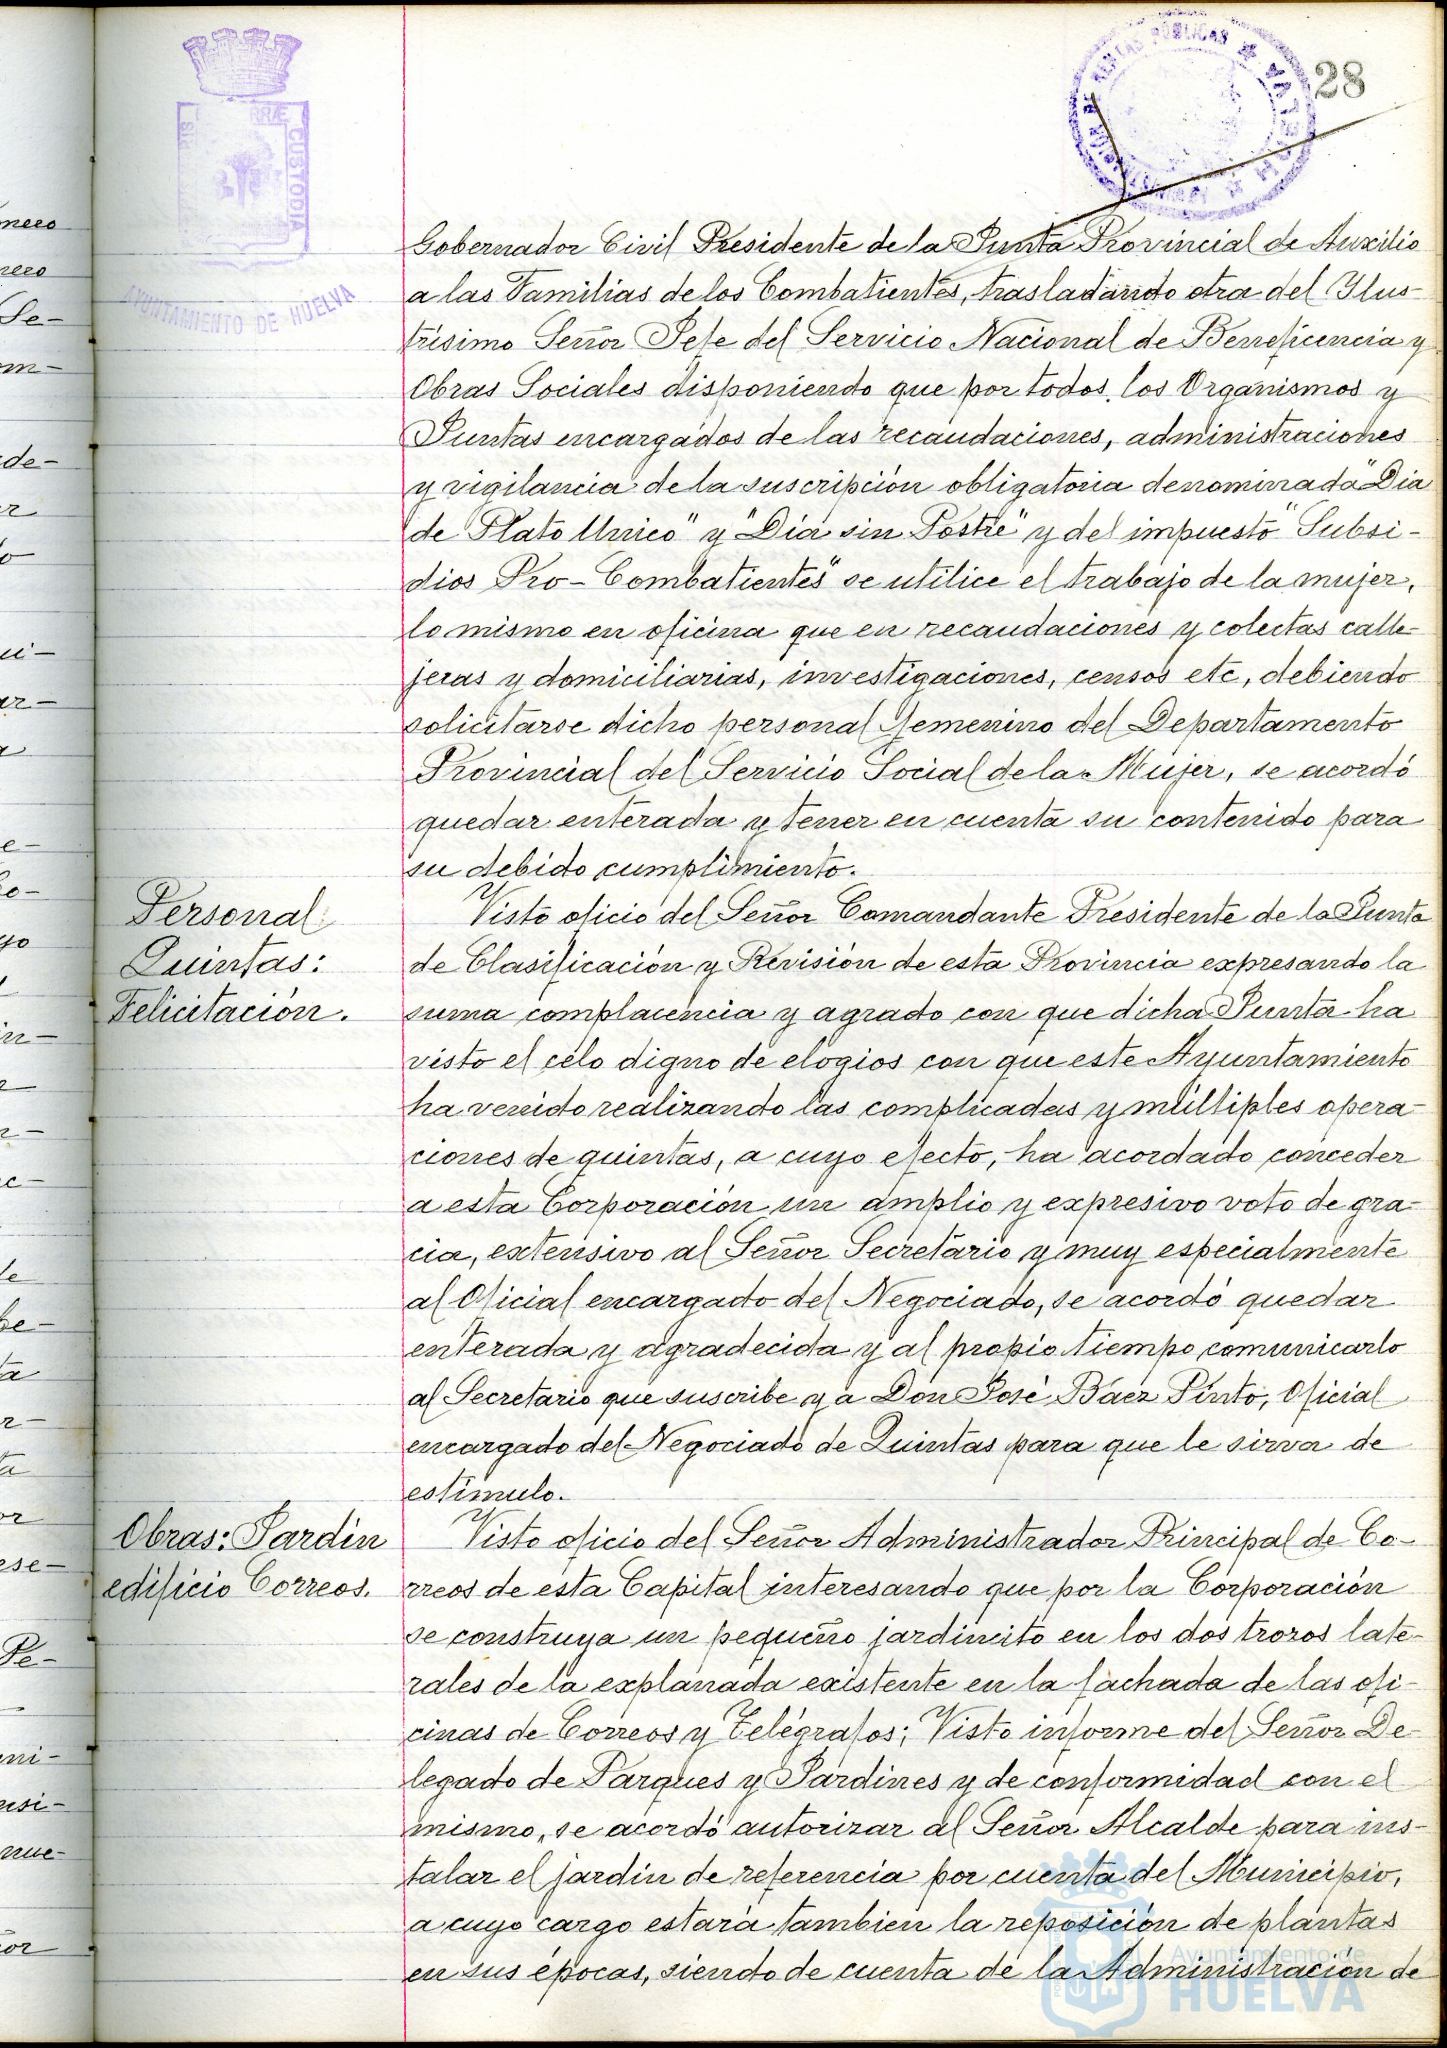 28
AYUNTAMIENTO DE HUELVA
CUSTODIA
Gobernador Civil Presidente de la Junta Provincial de Auxilio
a las Familias de los Combatientes, trasladando otra del Ylus-
trísimo Señor Jefe del Servicio Nacional de Beneficencia y
Obras Sociales disponiendo que por todos los Organismos y
Juntas encargados de las recaudaciones, administraciones
y vigilancia de la suscripción obligatoria denominada "Dia
de Plato Unico" y "Dia sin Postre" y del impuesto "Subsi-
dios Pro-Combatientes" se utilice el trabajo de la mujer,
lo mismo en oficina que en recaudaciones y colectas calle-
jeras y domiciliarias, investigaciones, censos etc, debiendo
solicitarse dicho personal femenino del Departamento
Provincial del Servicio Social de la Mujer, se acordó
quedar enterada y tener en cuenta su contenido para
su debido cumplimiento.
Personal
Quintas:
Felicitación.
Visto oficio del Señor Comandante Presidente de la Junta
de Clasificación y Revisión de esta Provincia expresando la
suma complacencia y agrado con que dicha Junta ha
visto el celo digno de elogios con que este Ayuntamiento
ha venido realizando las complicadas y múltiples opera-
ciones de quintas, a cuyo efecto, ha acordado conceder
a esta Corporación un amplio y expresivo voto de gra-
cia, extensivo al Señor Secretario y muy especialmente
al Oficial encargado del Negociado, se acordó quedar
enterada y agradecida y al propio tiempo comunicarlo
al Secretario que suscribe y a Don José Báez Pinto, Oficial
encargado del Negociado de Quintas para que le sirva de
estímulo.
Obras: Jardín
edificio Correos.
Visto oficio del Señor Administrador Principal de Co-
rreos de esta Capital interesando que por la Corporación
se construya un pequeño jardincito en los dos trozos late-
rales de la explanada existente en la fachada de las ofi-
cinas de Correos y Telégrafos; Visto informe del Señor De-
legado de Parques y Jardines y de conformidad con el
mismo, se acordó autorizar al Señor Alcalde para ins-
talar el jardín de referencia por cuenta del Municipio,
a cuyo cargo estará tambien la reposición de plantas
en sus épocas, siendo de cuenta de la Administración de
Ayuntamiento de
HUELVA